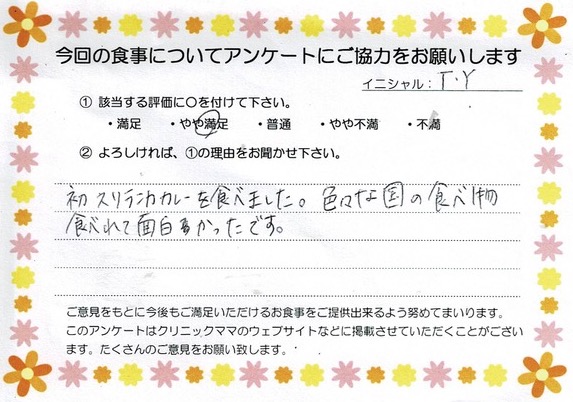 今回の食事についてアンケートにご協力をお願いします
イニシャル：T・Y
① 該当する評価に○を付けて下さい。
・満足 ・やや満足 ・普通 ・やや不満 ・不満
② よろしければ、①の理由をお聞かせ下さい。
初スリランカカレーを食べました。色々な国の食べ物
食べれて面白かったです。
ご意見をもとに今後もご満足いただけるお食事をご提供出来るよう努めてまいります。
このアンケートはクリニックママのウェブサイトなどに掲載させていただくことがござい
ます。たくさんのご意見をお願い致します。